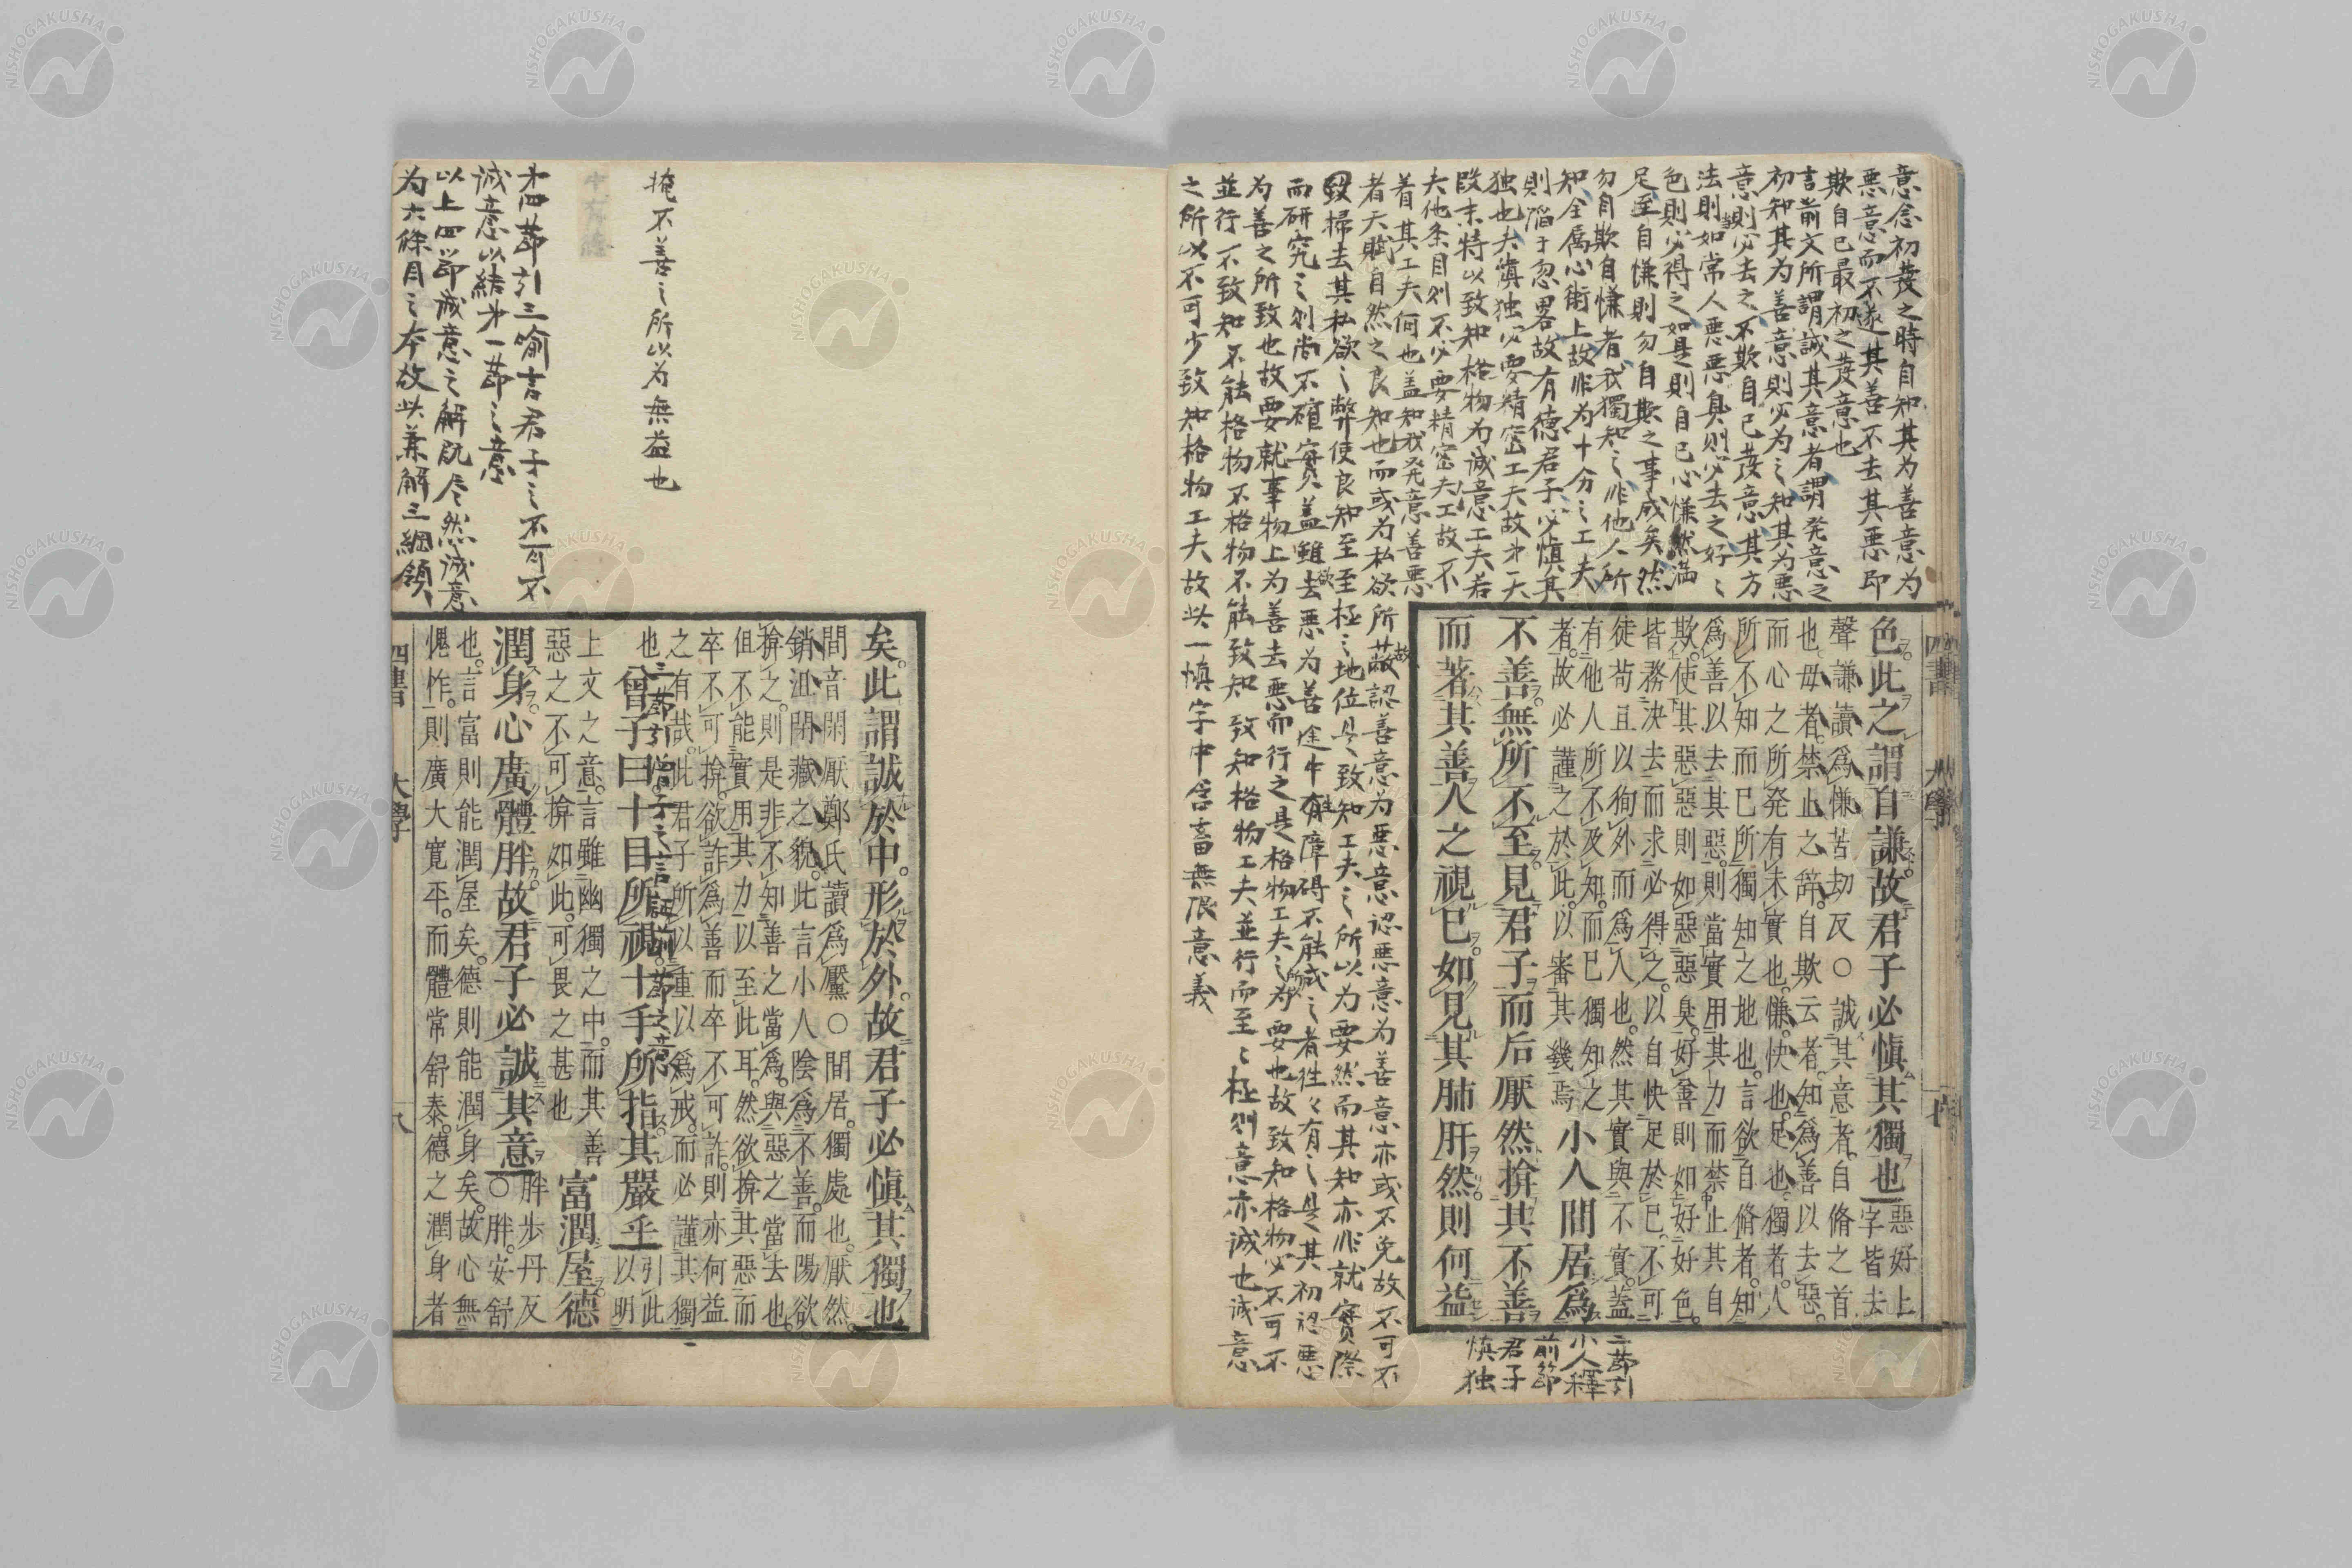 意念初發之時自知其为善意为
悪意而不遂其善不去其悪即
欺自已最初之發意也
言前文所謂誠其意者謂発意之
初知其为善意則必为之知其为悪
意則必去之不欺自已發意其方
法則如常人悪悪臭則必去之好〻
色則必得之如是則自已心慊然満
足至自慊則勿自欺之事成矣然
勿自欺自慊者我獨知之非他人所
知全属心術上故非为十分之工夫
則陥于忽畧故有德君子必慎其
独也夫慎独必要精密工夫故才一
段末特以致知格物为诚意工夫若
夫他条目则不必要精密工夫故不
着其工夫何也盖知我発意善悪
者天賦自然之良知也而或为私欲所蔽故認善意为悪意認悪意为善意亦或不免故不可不
致掃去其私欲之弊使良知至至極之地位是致知工夫之所以为要然而其知亦非就實際
而研究之则尚不確實盖雖欲去悪为善途中有障碍不能诚之者徃々有之是其初認悪
为善之所致也故要就事物上为善去悪而行之是格物工夫之所为要也故致知格物必不可不
並行不致知不能格物不格物不能致知致知格物工夫並行而至〻極则意亦诚也诚意
之所以不可少致知格物工夫故此一慎字中含畜無限意義
四書 大學 七
色此之謂自謙故君子必愼其獨也惡好上
字皆去
聲謙讀爲慊苦劫反○誠其意者自脩之首
也毋者禁止之辭自欺云者知爲善以去惡
而心之所発有未實也慊快也足也獨者人
所不知而已所獨知之地也言欲自脩者知
爲善以去其惡則當實用其力而禁止其自
欺使其惡惡則如惡惡臭好善則如好好色
皆務決去而求必得之以自快足於已不可
徒苟且以徇外而爲人也然其實與不實蓋
有他人所不及知而已獨知之
者故必謹之於此以審其幾焉小人間居爲
不善無所不至見君子而后厭然揜其不善
而著其善人之視已如見其肺肝然則何益
二節引
小人釋
前節
君子
慎独
掩不善之所以为無益也
才四節引三喻言君子之不可不
诚意以結才一節之意
以上四節诚意之解既尽然诚意
为六條目之本故此兼解三綱領
矣此謂誠於中形於外故君子必愼其獨也
間音閑厭鄭氏讀爲黶○間居獨處也厭然
銷沮閉藏之貌此言小人陰爲不善而陽欲
揜之則是非不知善之當爲與惡之當去也
但不能實用其力以至此耳然欲揜其惡而
卒不可揜欲詐爲善而卒不可詐則亦何益
之有哉此君子所以重以爲戒而必謹其獨
也
三節引曽子之言証前節之意
曾子曰十目所視十手所指其嚴乎引此
以明
上文之意言雖幽獨之中而其善
惡之不可揜如此可畏之甚也富潤屋德
潤身心廣體胖故君子必誠其意胖歩丹反
○胖安舒
也言富則能潤屋矣德則能潤身矣故心無
愧怍則廣大寛平而體常舒泰德之潤身者
四書 大學 八